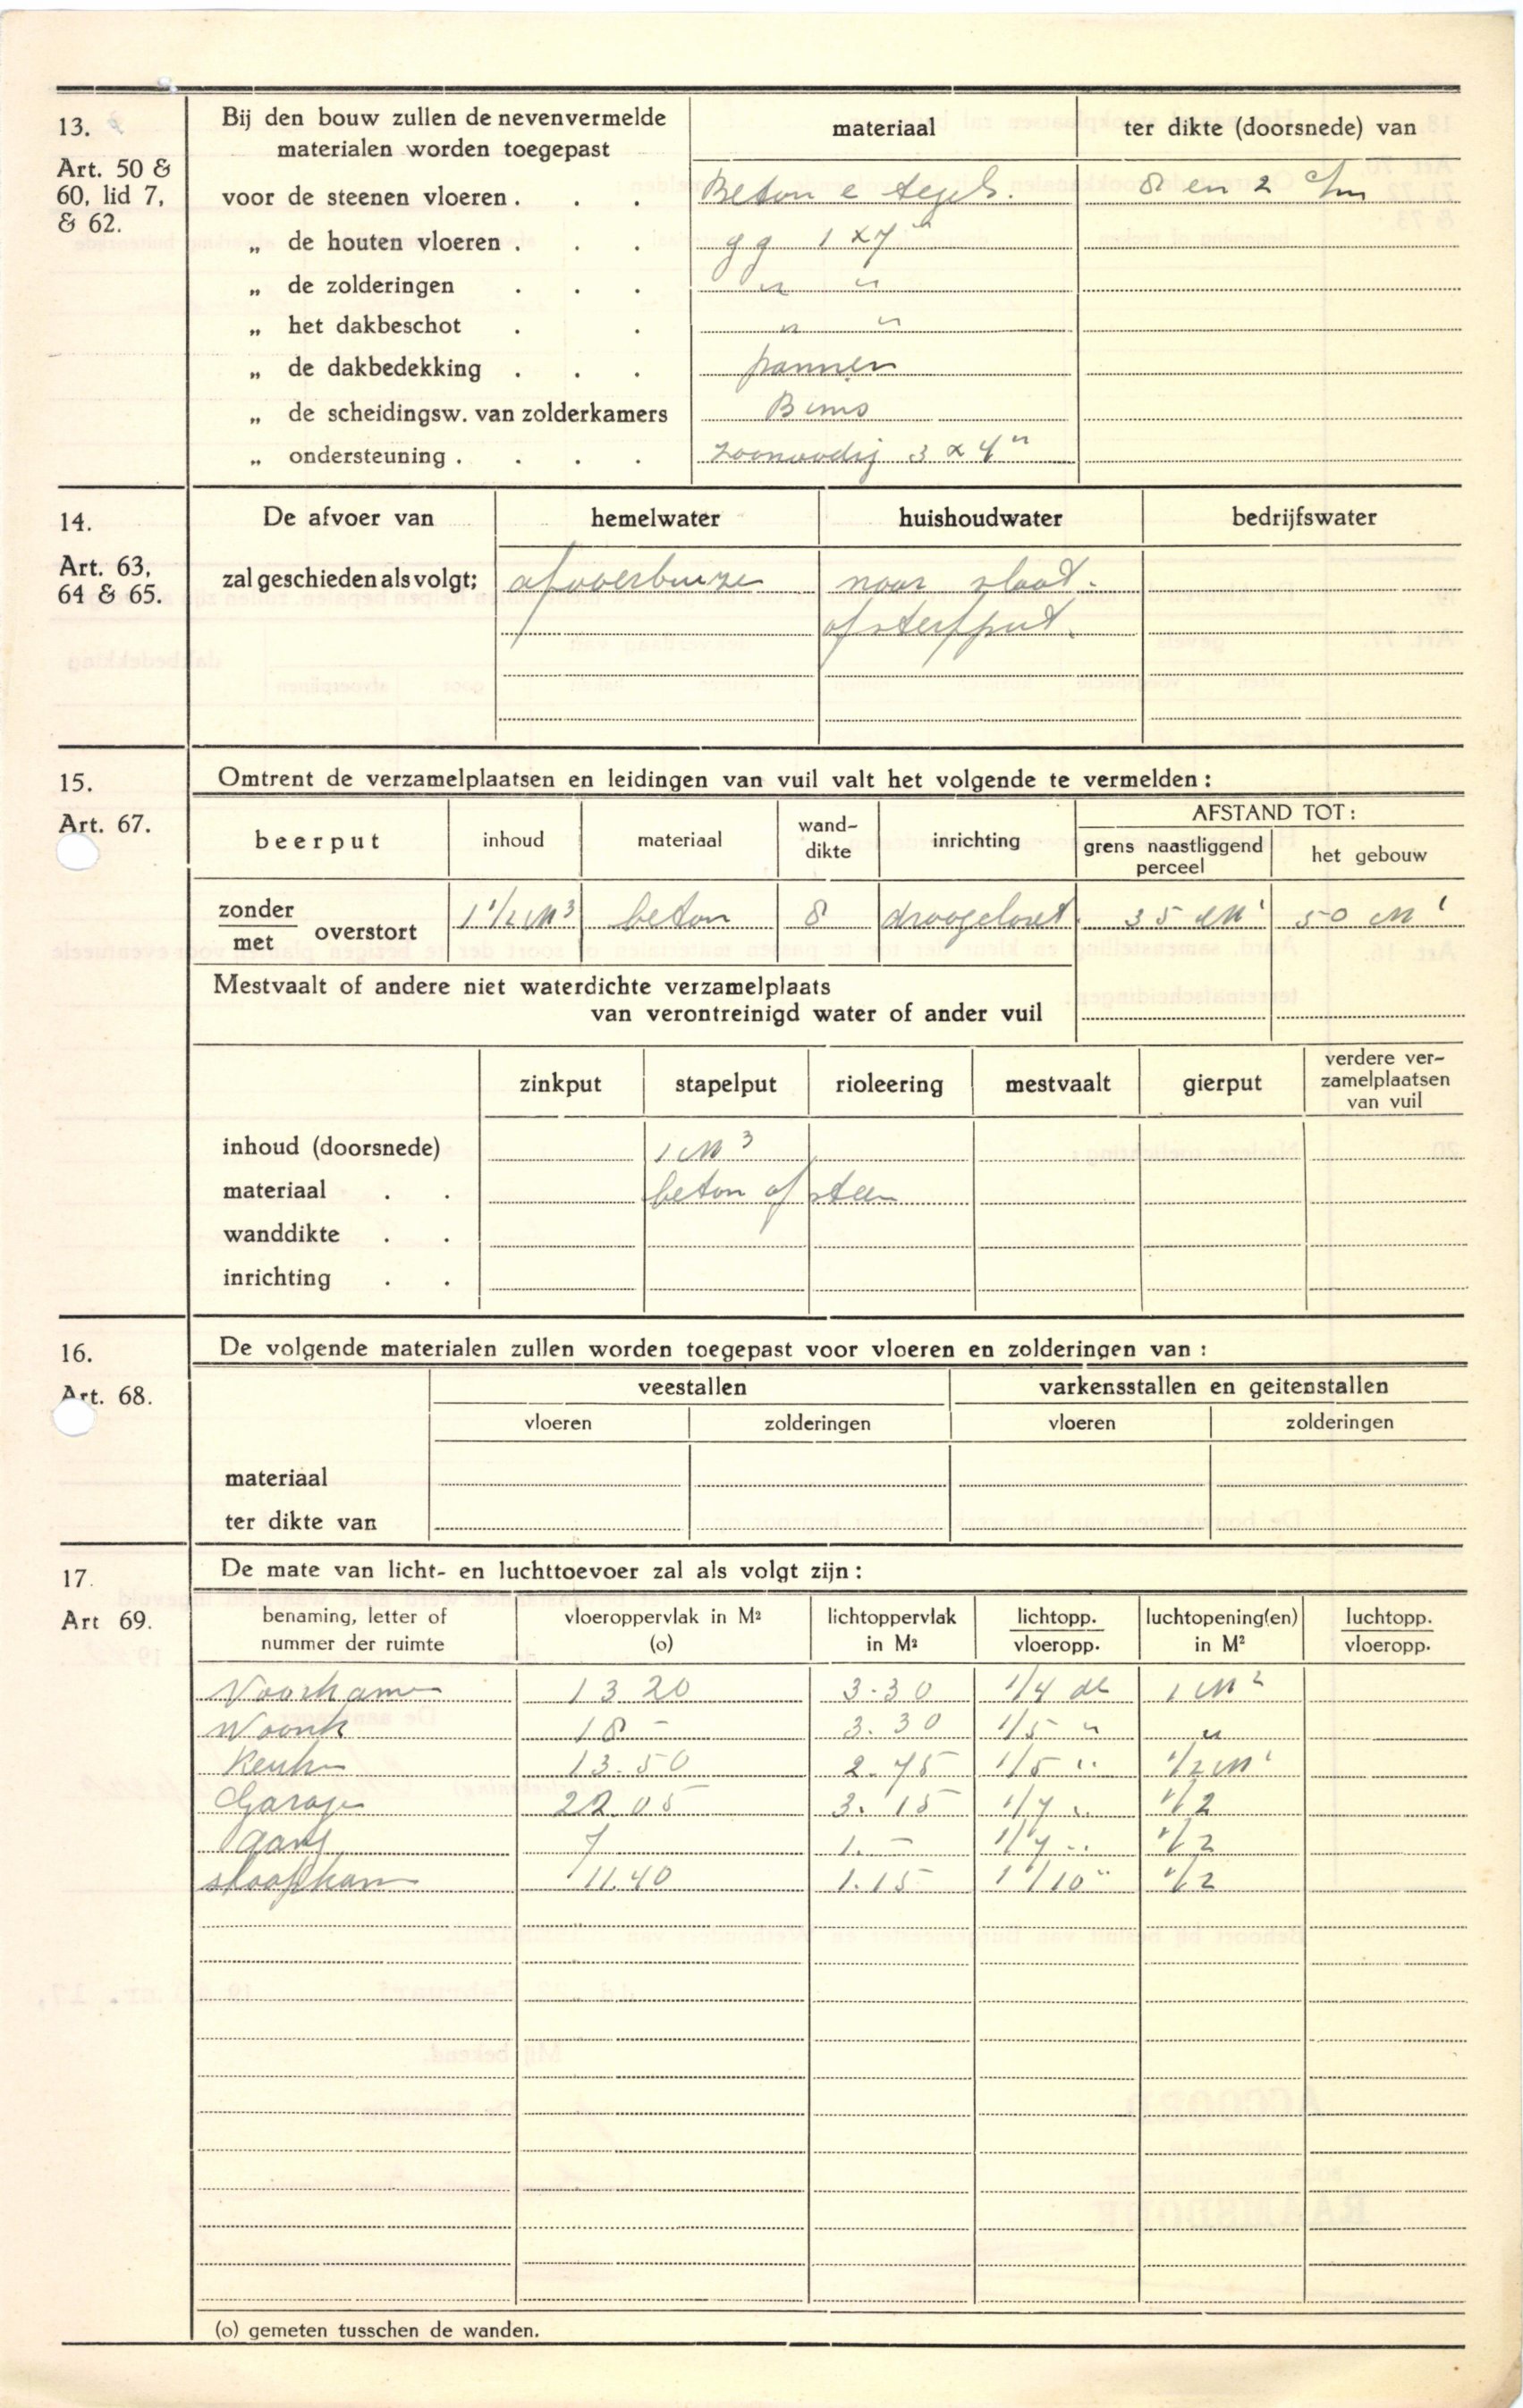 13.
Art. 50 &
60, lid 7,
& 62.
Bij den bouw zullen de nevenvermelde
materialen worden toegepast
materiaal
ter dikte (doorsnede) van
voor de steenen vloeren . . . Beton e tegels. 8 en 2 c/m
„ de houten vloeren . . . g g 1 x 7"
„ de zolderingen . . . " "
„ het dakbeschot . . " "
„ de dakbedekking . . . pannen
„ de scheidingsw. van zolderkamers Bims
„ ondersteuning . . . . zoonoodig 3 x 4"
14.
Art. 63,
64 & 65.
De afvoer van hemelwater huishoudwater bedrijfswater
zal geschieden als volgt; afvoerbuize naar sloot.
of sterfput.
15.
Art. 67.
Omtrent de verzamelplaatsen en leidingen van vuil valt het volgende te vermelden :
beerput inhoud materiaal wand-
dikte inrichting AFSTAND TOT :
grens naastliggend
perceel het gebouw
zonder
met overstort 1 1/2 M3 beton 8 droogcloset. 35 M' 50 M'
Mestvaalt of andere niet waterdichte verzamelplaats
van verontreinigd water of ander vuil
zinkput stapelput rioleering mestvaalt gierput verdere ver-
zamelplaatsen
van vuil
inhoud (doorsnede) 1 M3
materiaal . . beton of steen
wanddikte . .
inrichting . .
16.
Art. 68.
De volgende materialen zullen worden toegepast voor vloeren en zolderingen van :
veestallen varkensstallen en geitenstallen
vloeren zolderingen vloeren zolderingen
materiaal
ter dikte van
17.
Art 69.
De mate van licht- en luchttoevoer zal als volgt zijn :
benaming, letter of
nummer der ruimte
vloeroppervlak in M²
(o)
lichtoppervlak
in M²
lichtopp.
vloeropp.
luchtopening(en)
in M²
luchtopp.
vloeropp.
Voorkame 13 20 3.30 1/4 dl 1 M2
Woonk 18 - 3.30 1/5 " "
Keuken 13.50 2.75 1/5 " 1/2 M'
Garage 22.05 3.15 1/7 " 1/2
Gang 7 1.- 1/7 " 1/2
slaapkam 11.40 1.15 1/10 " 1/2
(o) gemeten tusschen de wanden.